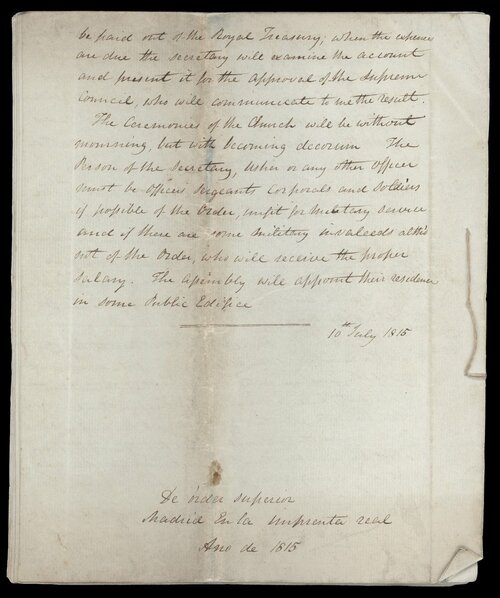 be paid out of the Royal Treasury; when the expenses
are due the secretary will examine the account
and present it for the approval of the Supreme
Council, who will communicate to me the result.
The Ceremonies of the Church will be without
mourning, but with becoming decorum The
Person of the Secretary, Usher or any other Officer
must be officers Sergeants Corporals and Soldiers
if possible of the Order, unfit for Military Service
and if there are some military invaleeds altho
not of the Order, who will receive the proper
salary. The assembly will appoint their residence
in some Public Edifice
10th July 1815
De órden superior
Madrid En la imprenta real
Ano de 1815